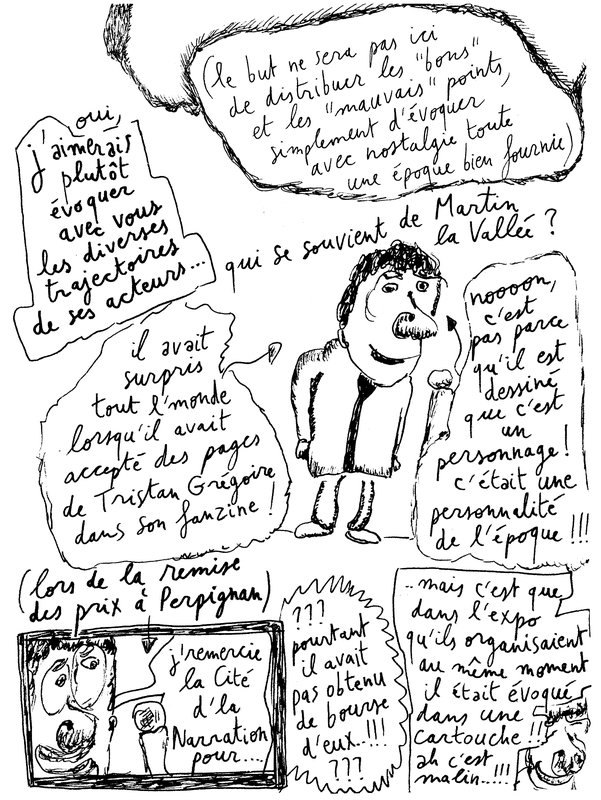 (le but ne sera pas ici
de distribuer les "bons"
et les "mauvais" points,
simplement d'évoquer
avec nostalgie toute
une époque bien fournie)
oui,
j'aimerais
plutôt
évoquer
avec vous
les diverses
trajectoires
de ses acteurs...
qui se souvient de Martin
la Vallée ?
il avait
surpris
tout l'monde
lorsqu'il avait
accepté des pages
de Tristan Grégoire
dans son fanzine !
noooon,
c'est
pas parce
qu'il est
dessiné
que c'est
un
personnage !
c'était une
personnalité
de l'époque !!!
(lors de la remise
des prix à Perpignan)
j'remercie
la Cité
d'la
Narration
pour....
???
pourtant
il avait
pas obtenu
de bourse
d'eux..!!!
???
..mais c'est que
dans l'expo
qu'ils organisaient
au même moment
il était évoqué
dans une
cartouche !!
ah c'est
malin..!!!